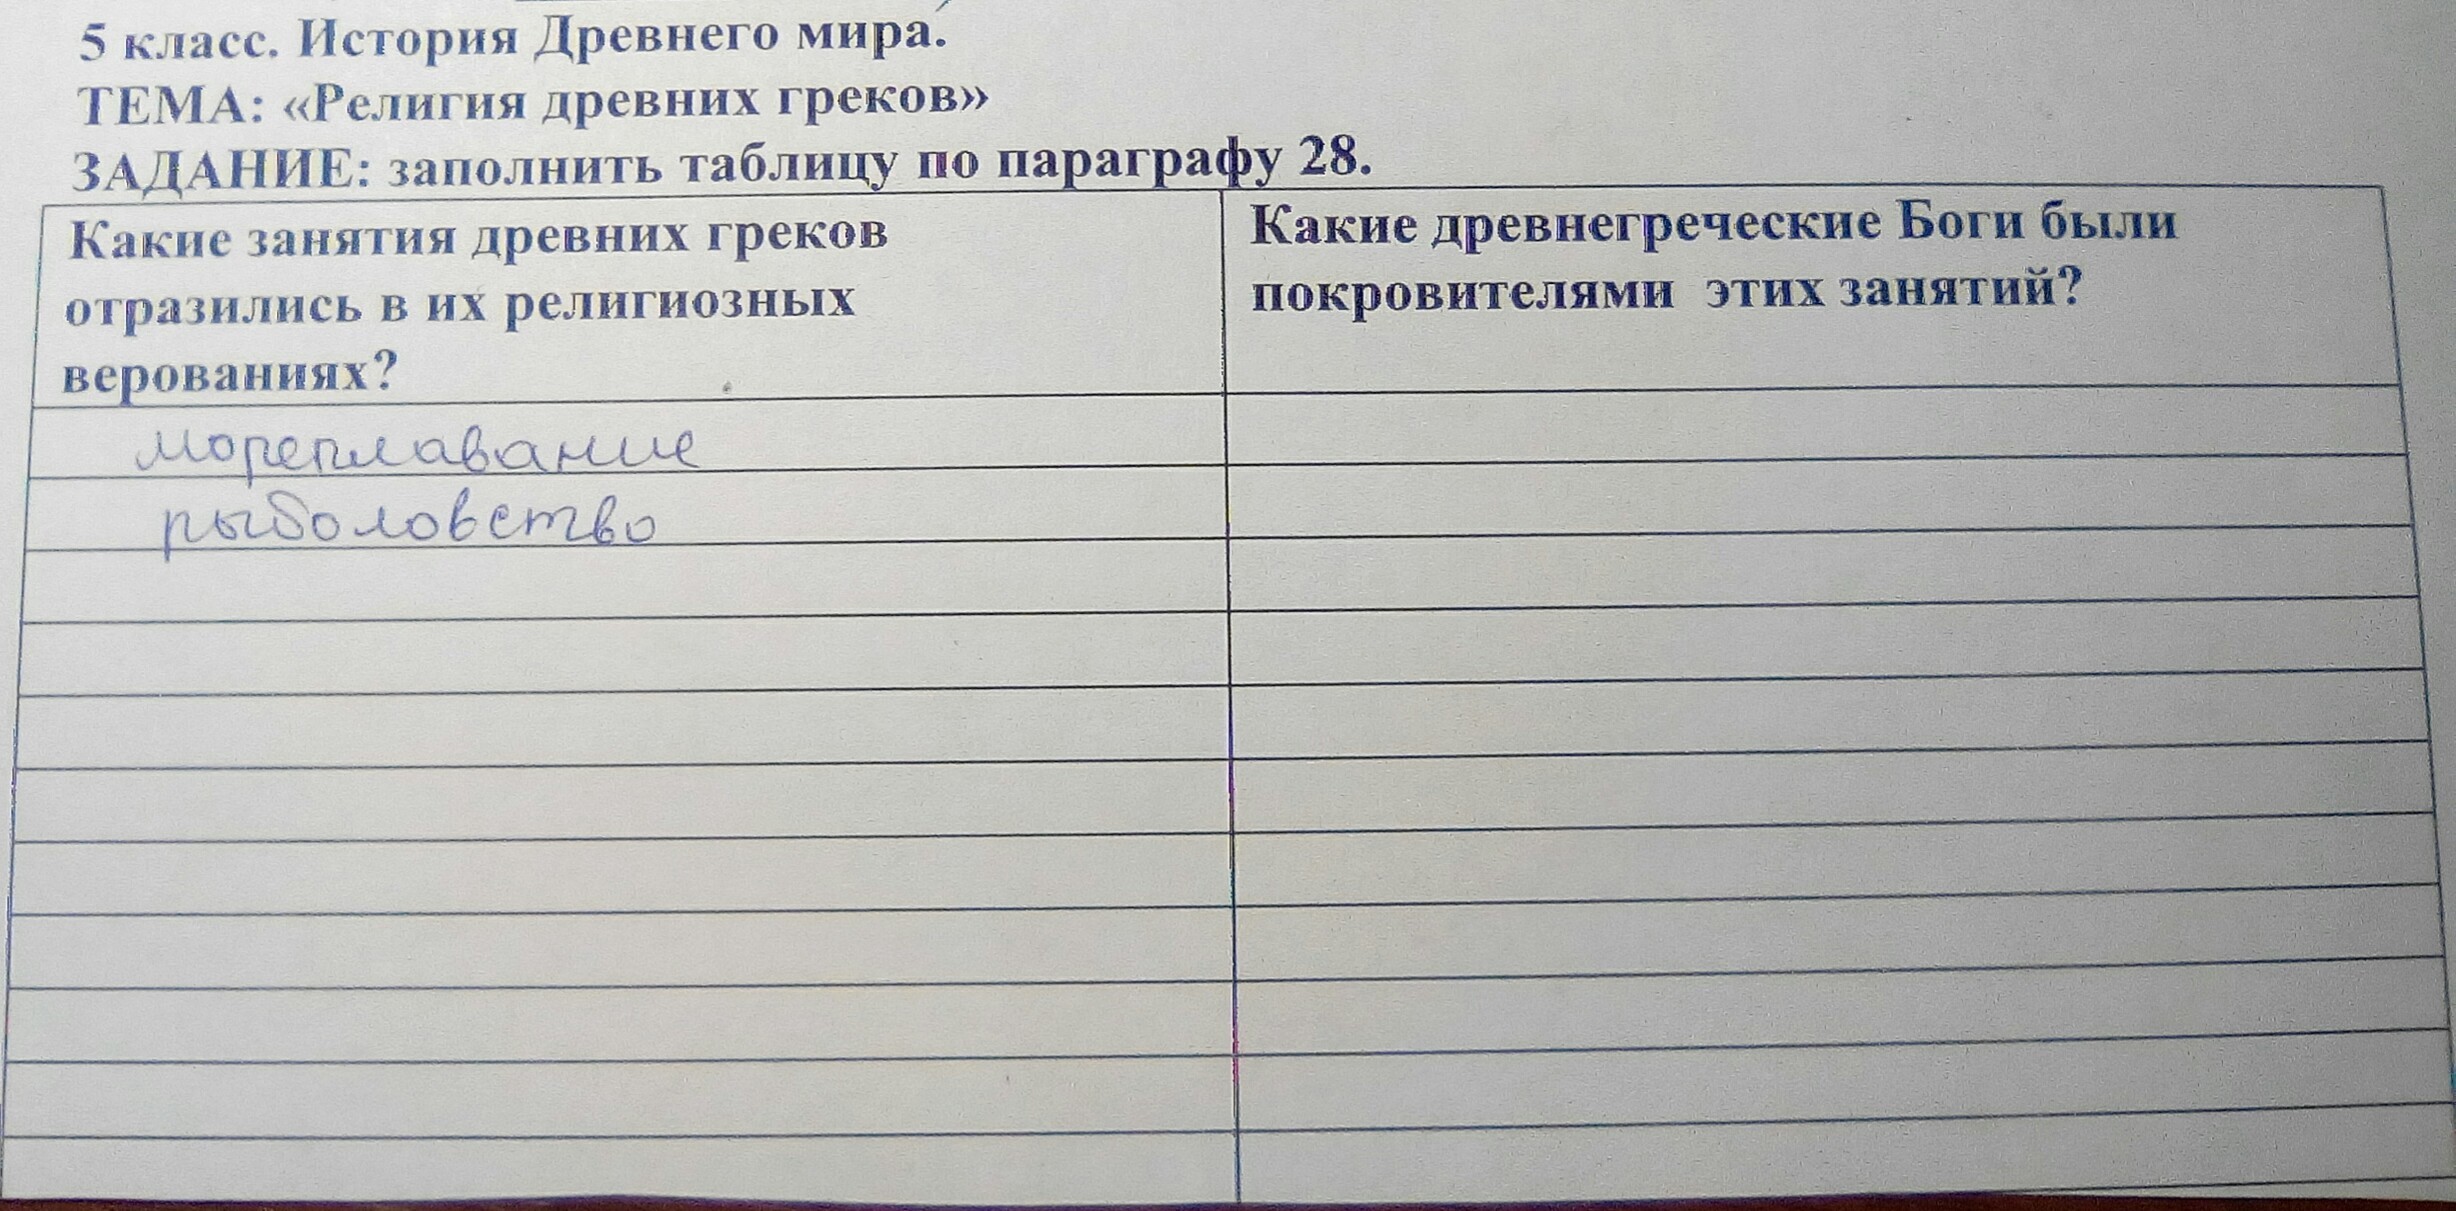 5 класс. История Древнего мира.
ТЕМА: «Религия древних греков»
ЗАДАНИЕ: заполнить таблицу по параграфу 28.
Какие занятия древних греков
отразились в их религиозных
верованиях?
Какие древнегреческие Боги были
покровителями этих занятий?
мореплавание
рыболовство